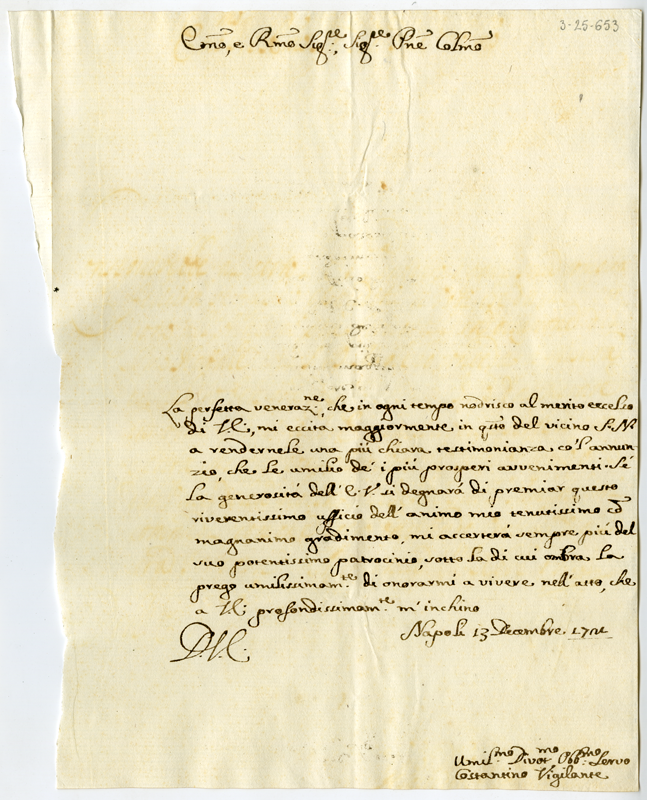 3-25-653
Emo, e Rmo Sigre, Sigre Pne Colmo
La perfetta venerazne, che in ogni tempo nodrisco al merito eccelso
di V. E., mi eccita maggiormente in qsto del vicino S. N.
a rendernele una più chiara testimonianza co'l annun-
zio, che le umilio de' i più prosperi avvenimenti. Se
la generosità dell' E. V. si degnarà di premiar questo
riverentissimo ufficio dell' animo mio tenutissimo co'
magnanimo gradimento, mi accerterà sempre più del
suo potentissimo patrocinio, sotto la di cui ombra la
prego umilissimamte di onorarmi a vivere nell' atto, che
a V. E. profondissimamte m' inchino
Napoli 13 Decembre
D. V. E.
Umilsmo Divotmo Obbmo Servo
Costantino Vigilante